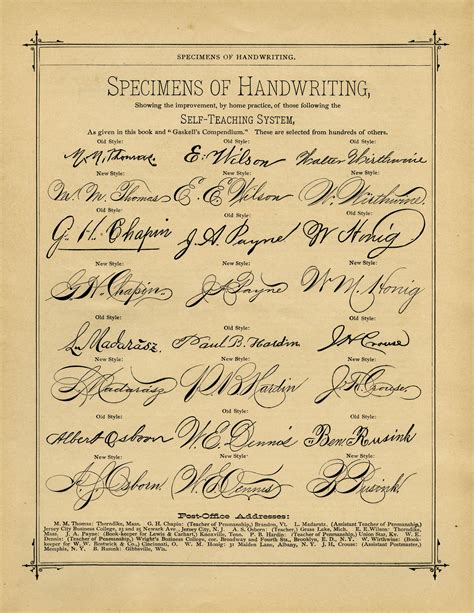 SPECIMENS OF HANDWRITING.
SPECIMENS OF HANDWRITING,
Showing the improvement, by home practice, of those following the
SELF-TEACHING SYSTEM,
As given in this book and "Gaskell's Compendium." These are selected from hundreds of others.
Old Style: Old Style: Old Style:
M. M. Thomas. E. Wilson Walter Wirthwine
New Style: New Style: New Style:
M. M. Thomas E. E. Wilson W. Wirthwine.
Old Style: Old Style: Old Style:
G. H. Chapin J. A. Payne W Honig
New Style: New Style: New Style:
G. H. Chapin. J. A. Payne W. M. Honig
Old Style: Old Style: Old Style:
L. Madarász Paul B. Hardin J. H. Crouse
New Style: New Style: New Style:
L. Madarász P. B. Hardin J. H. Crouse.
Old Style: Old Style: Old Style:
Albert Osboon W. E. Dennis Ben. Rusink
New Style: New Style: New Style:
A. S. Osborn W. E. Dennis B. Rusink!
Post-Office Addresses:
M. M. Thomas: Thorndike, Mass. G. H. Chapin: (Teacher of Penmanship,) Brandon, Vt. L. Madarasz, (Assistant Teacher of Penmanship,)
Jersey City Business College, 23 and 25 Newark Ave., Jersey City, N. J. A. S. Osborn: (Teacher,) Grass Lake, Mich. E. E. Wilson: Thorndike,
Mass. J. A. Payne: (Book-keeper for Lewis & Carhart,) Knoxville, Tenn. P. B. Hardin: (Teacher of Penmanship,) Union Star, Ky. W. E. Dennis:
(Teacher of Penmanship,) Wright's Business College, cor. Broadway and Fourth Sts., Brooklyn, E. D., N. Y. W. Wirthwine: (Book-
keeper for W. W. Bostwick & Co.,) Cincinnati, O. W. M. Honig: 31 Maiden Lane, Albany, N. Y. J. H. Crouse: (Assistant Postmaster,)
Memphis, N. Y. B. Rusink: Gibbsville, Wis.